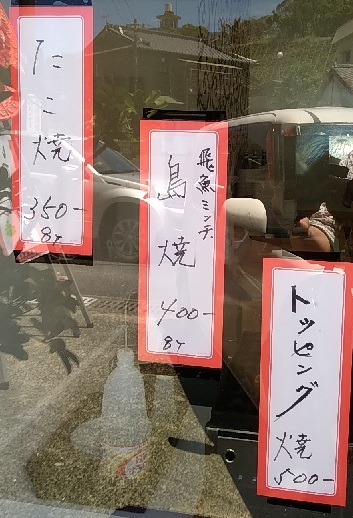 たこ焼
350-
8ケ
飛魚ミンチ
島焼
400-
8ケ
トッピング焼
500-